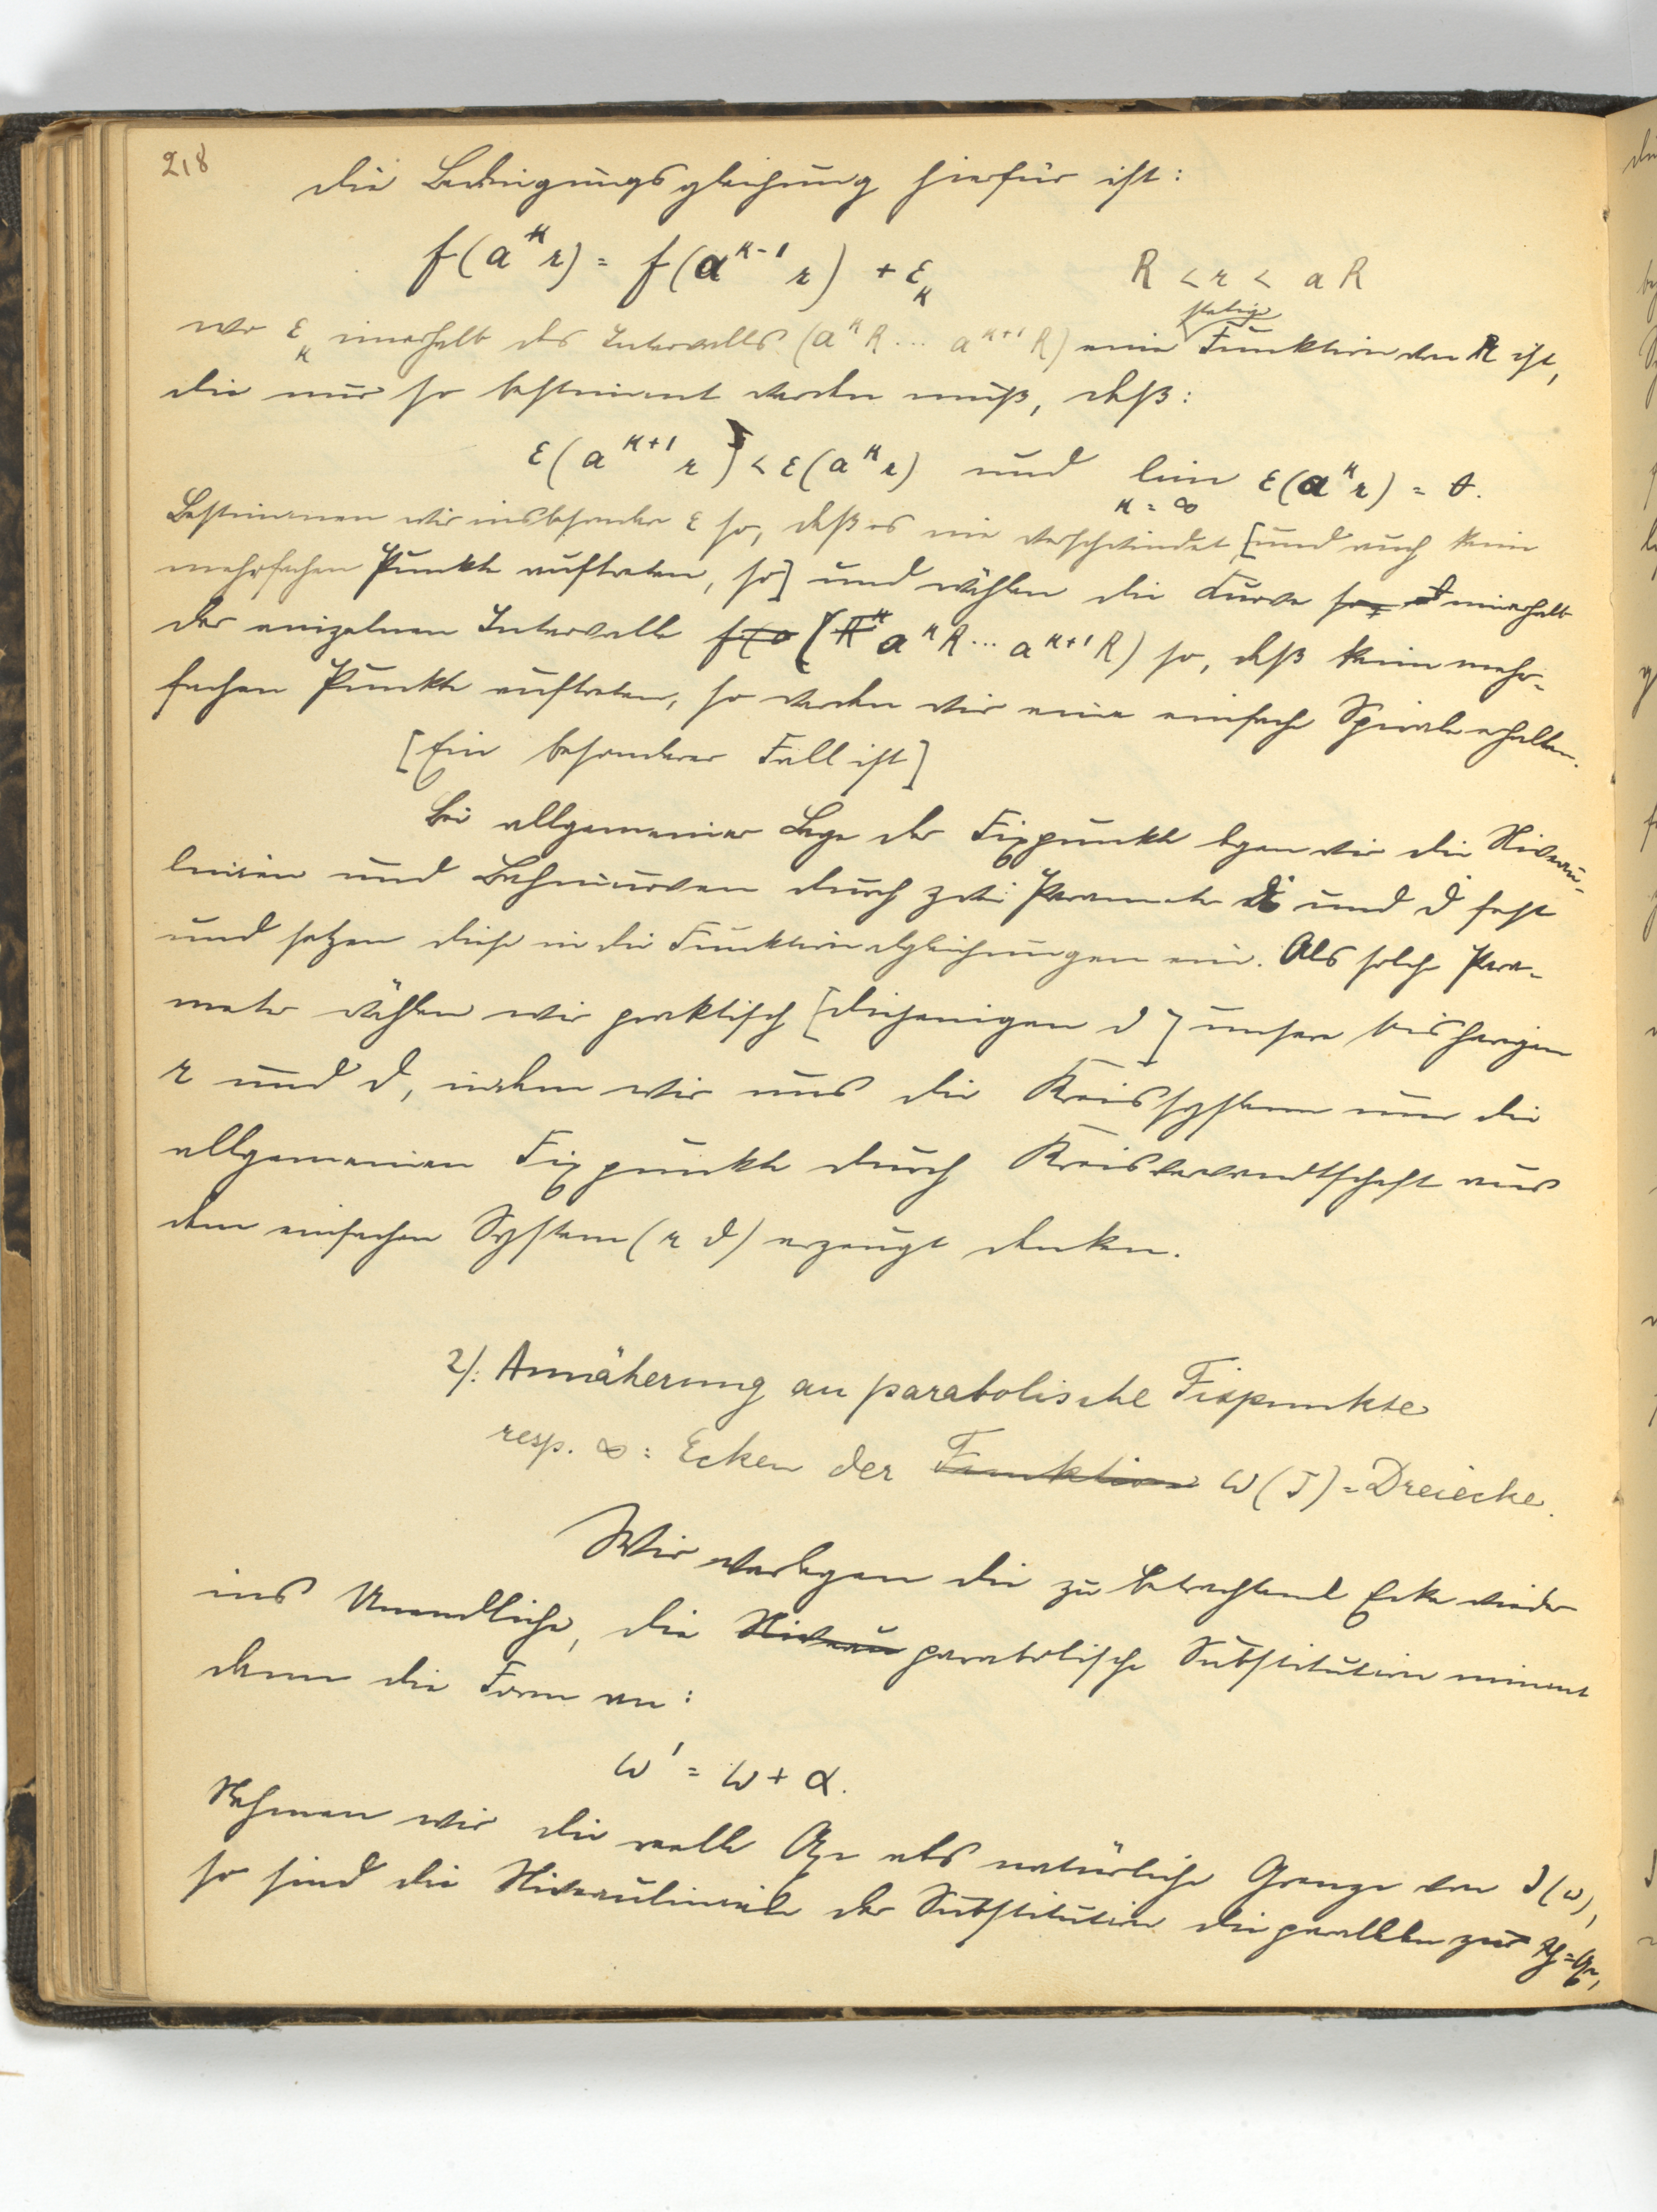 218
Die Bedingungsgleichung hierfür ist:
f(a^κ r) = f(a^{κ-1} r) + ε_κ R < r < a R
wo ε_κ innerhalb des Intervalls (a^κ R ... a^{κ+1} R) eine stetige Funktion von R ist,
die nur so bestimmt werden muß, daß:
ε(a^{κ+1} r) < ε(a^κ r) und lim_{κ=∞} ε(a^κ r) = 0.
Bestimmen wir insbesondere ε so, daß es nie verschwindet [und auch keine
mehrfachen Punkte auftreten, so] und wählen die Kurve so, innerhalb
der einzelnen Intervalle (a^κ R ... a^{κ+1} R) so, daß keine mehr-
fachen Punkte auftreten, so werden wir eine einfache Spirale erhalten.
[Ein besonderer Fall ist]
Bei allgemeiner Lage der Fixpunkte legen wir die Niveau-
linien und Bahncurven durch zwei Parameter und ϑ fest
und setzen diese in die Funktionalgleichungen ein. Als solche Para-
meter wählen wir praktisch [diejenigen ϑ] unsere bisherigen
r und ϑ, indem wir uns die Kreissysteme um die
allgemeinen Fixpunkte durch Kreisverwandtschaft aus
dem einfachen System (r ϑ) erzeugt denken.
2/: Annäherung an parabolische Fixpunkte
resp. ∞ = Ecken der Funktion ω(J) = Dreiecke.
Wir verlegen die zu betrachtende Ecke wieder
ins Unendliche, die Niveau parabolische Substitution nimmt
dann die Form an:
ω' = ω + α.
Nehmen wir die reelle Axe als natürliche Grenze von J(ω),
so sind die Niveaulinien der Substitution die parallelen zur